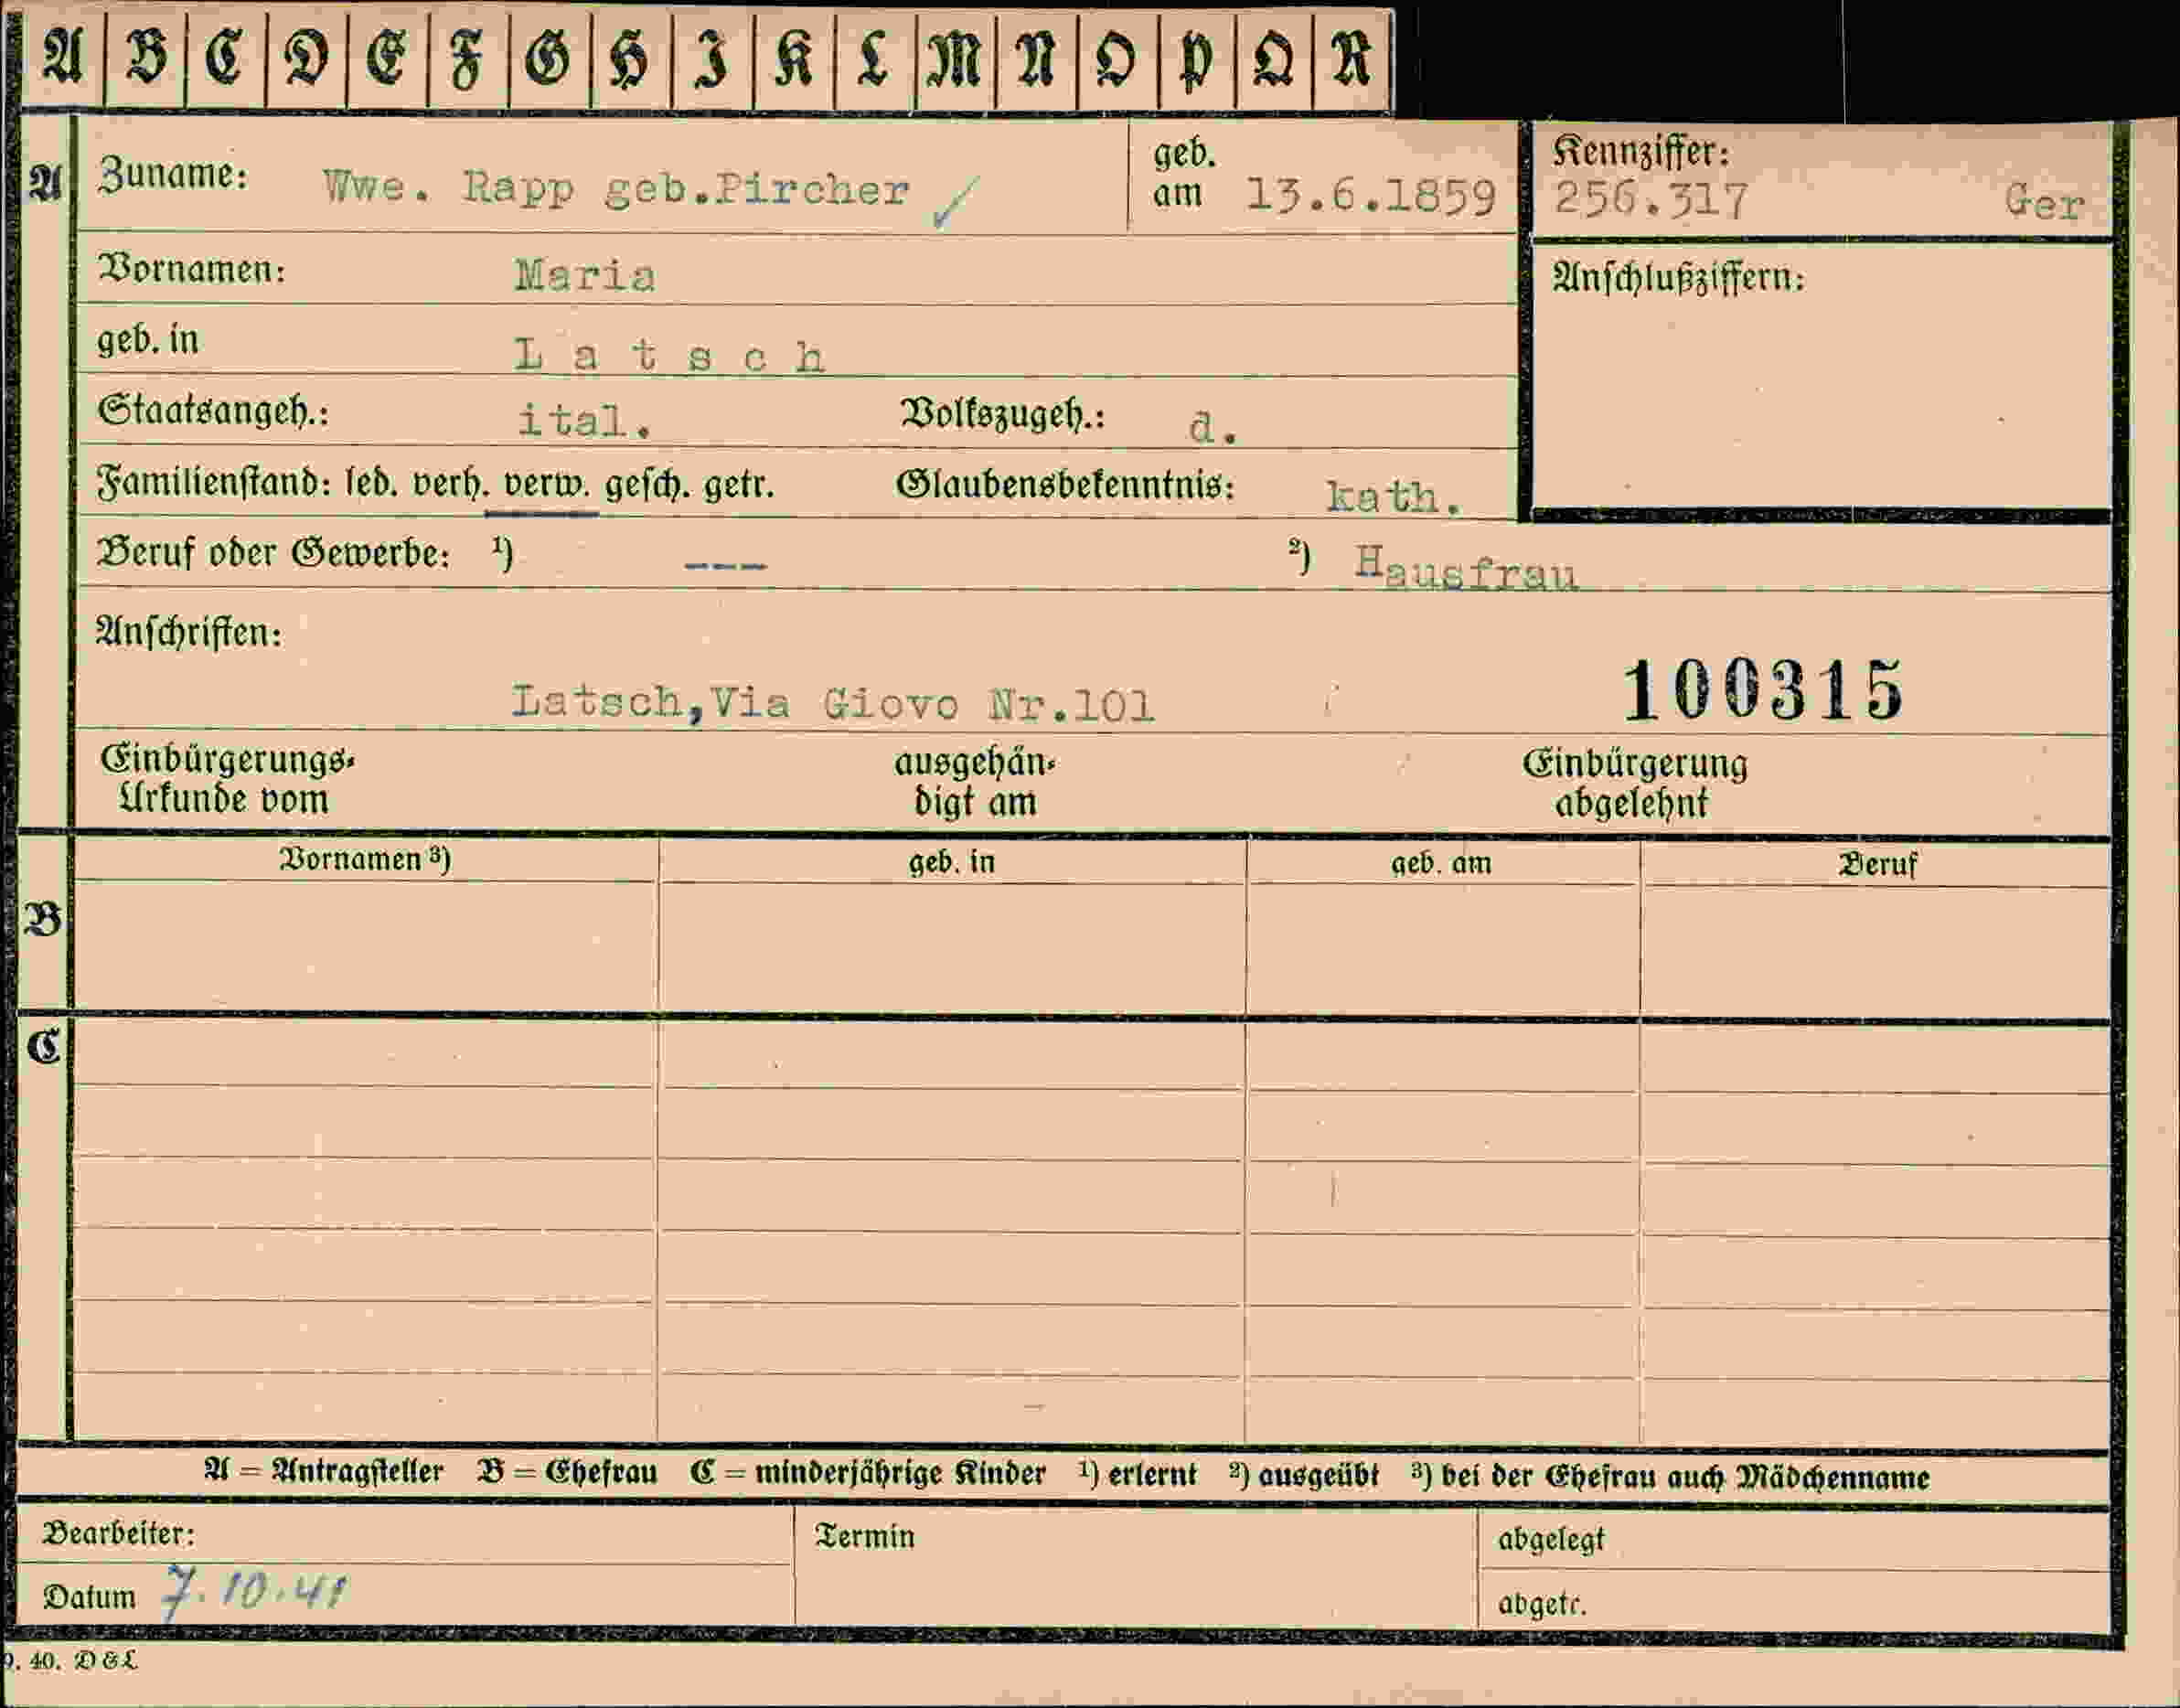 A B C D E F G H I K L M N O P Q R
A Zuname: Wwe. Rapp geb.Pircher ✓ geb. am 13.6.1859
Kennziffer:
256.317 Ger
Vornamen: Maria
Anschlußziffern:
geb. in L a t s c h
Staatsangeh.: ital. Volkszugeh.: d.
Familienstand: led. verh. verw. gesch. getr. Glaubensbekenntnis: kath.
Beruf oder Gewerbe: ¹) --- ²) Hausfrau
Anschriften:
Latsch,Via Giovo Nr.101 100315
Einbürgerungs- ausgehän- Einbürgerung
Urkunde vom digt am abgelehnt
Vornamen ³) geb. in geb. am Beruf
B
C
A = Antragsteller B = Ehefrau C = minderjährige Kinder ¹) erlernt ²) ausgeübt ³) bei der Ehefrau auch Mädchenname
Bearbeiter: Termin abgelegt
Datum 7.10.41 abgetr.
9. 40. D & L